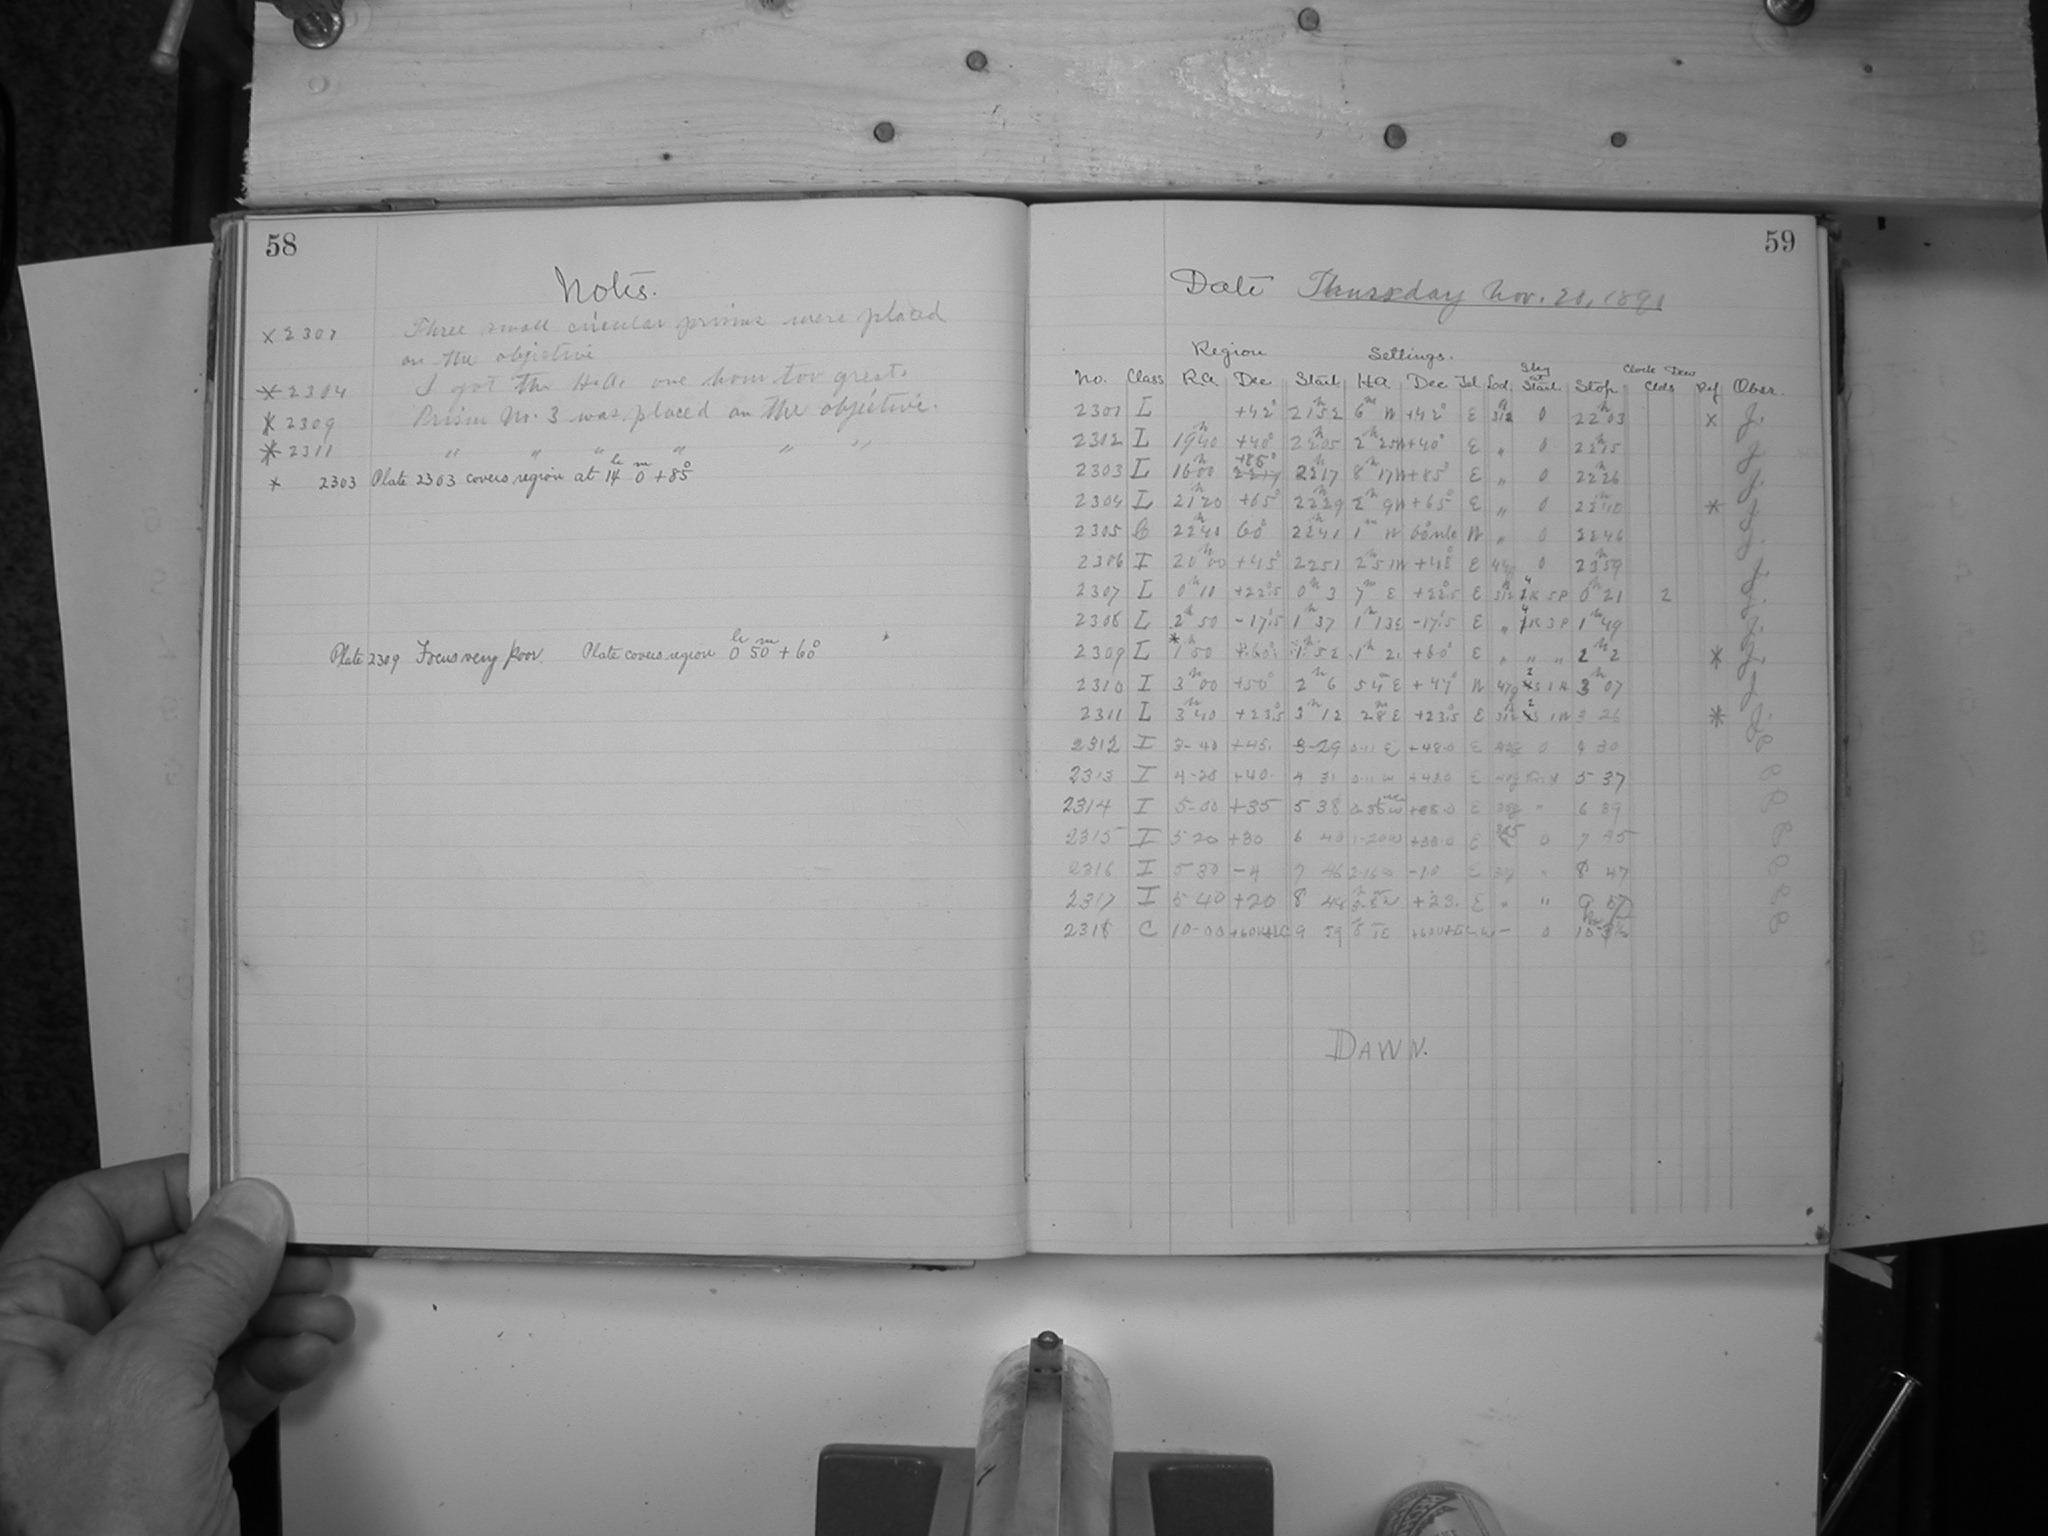 58
Notes.
× 2301 Three small circular prisms were placed
on the objective
* 2304 I got the H.A. one hour too great.
* 2309 Prism No. 3 was placed on the objective.
* 2311 " " " " " "
* 2303 Plate 2303 covers region at 14h 0m +85°
Plate 2309 Focus very poor. Plate covers region 0h 50m + 60°
59
Date Thursday Nov. 1891
Region Settings.
No. Class RA Dec Start HA Dec Tel Lod Sky at Start Stop Clock Clds Dew Ref Obsr.
2301 L +42° 21h52 6m W +42° E 312 0 22h03 × J.
2302 L 19h40 +40° 22h05 2h25W +40° E " 0 22h15 J.
2303 L 16h00 +85° 22h17 8h17W +85° E " 0 22h26 J.
2304 L 21h20 +65° 22h29 2h9W +65° E " 0 22h40 * J.
2305 C 22h40 60° 22h41 1m W W " 0 2246 J.
2306 I 20h00 +45° 2251 2h51W +48° E 0 23h59 J.
2307 L 0h10 +22°.5 0h3 7m E +22°.5 E 312 5P 0h21 2 J.
2308 L 2h50 -17°.5 1h37 1h13E -17°.5 E " 3P 1h49 J.
2309 L *1h50 +60° 1h52 +60° E " " " 2h2 * J.
2310 I 3h00 +50° 2h6 54m E +47° W 3h07 J
2311 L 3h40 +23°.5 3h12 28m E +23°.5 E 312 3 26 * J.
2312 I 3-40 +45. 3-29 0-11 E +48.0 E 0 4 30 P
2313 I 4-20 +40. 4 31 0-11 W E 5 37 P
2314 I 5-00 +35 5 38 E " 6 39 P
2315 I 5 20 +30 6 40 1-20W +33.0 E 0 7 45 P
2316 I 5 30 -4 7 46 2-16W -10 E " 8 47 P
2317 I 5 40 +20 8 48 +23. E " " 9 57 P
2318 C 10-00 9 59 - 0 P
DAWN.